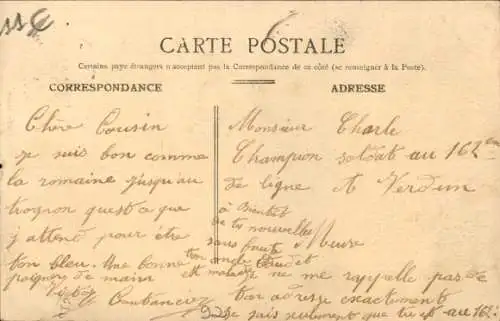 55C
CARTE POSTALE
Certains pays étrangers n'acceptent pas la Correspondance de ce côté (se renseigner à la Poste).
CORRESPONDANCE
Chère Cousin
je suis bon comme
la romaine jusqu'au
trognon quest a que
j'attend pour être
ton bleu. Une bonne
poignée de main
Coutancier
ADRESSE
Monsieur Charle
Champion soldat au 162em
de ligne A Verdun
à Bientôt
de tes nouvelles
sans faute
ton oncle
est malade
ne me rappelle pas de
ton adresse exactement
je sais seulement que tu est au 162